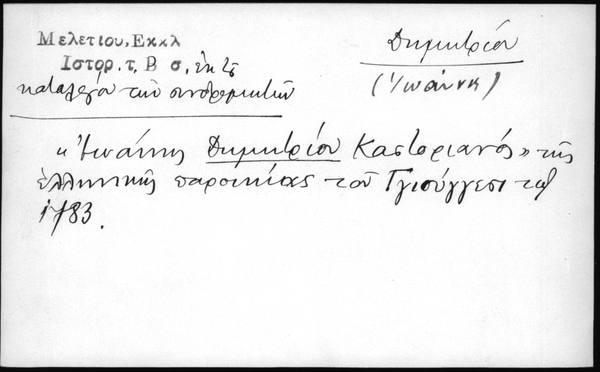 Μελετιου, Εκκλ
Ιστορ. τ, Β σ, ἐκ τ
καταλόγου τῶν συνδρομητῶν
Δημητρίου
(Ἰωάννης)
«Ἰωάννης Δημητρίου Καστοριανός» τῆς
ἑλληνικῆς παροικίας τοῦ Γγιούγγεσι τῷ
1783.